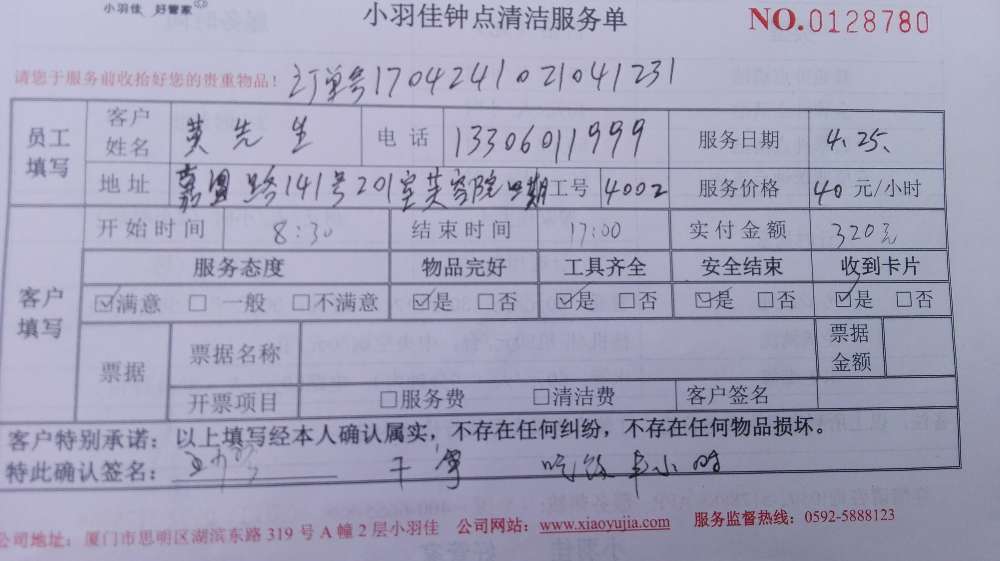 小羽佳 好管家
小羽佳钟点清洁服务单 NO.0128780
请您于服务前收拾好您的贵重物品! 订单号1704241021041231
员工填写 客户姓名 黄先生 电话 13306011999 服务日期 4.25.
地址 嘉园路141号201室芙蓉院 工号 4002 服务价格 40元/小时
客户填写 开始时间 8:30 结束时间 17:00 实付金额 320元
服务态度 物品完好 工具齐全 安全结束 收到卡片
☑满意 □一般 □不满意 ☑是 □否 ☑是 □否 ☑是 □否 ☑是 □否
票据 票据名称 票据金额
开票项目 □服务费 □清洁费 客户签名
客户特别承诺:以上填写经本人确认属实,不存在任何纠纷,不存在任何物品损坏。
特此确认签名: 干净 吃饭半小时
公司地址:厦门市思明区湖滨东路319号A幢2层小羽佳 公司网站:www.xiaoyujia.com 服务监督热线:0592-5888123